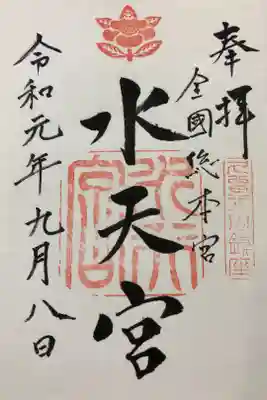 奉拝
全國総本宮
水天宮
令和元年九月八日